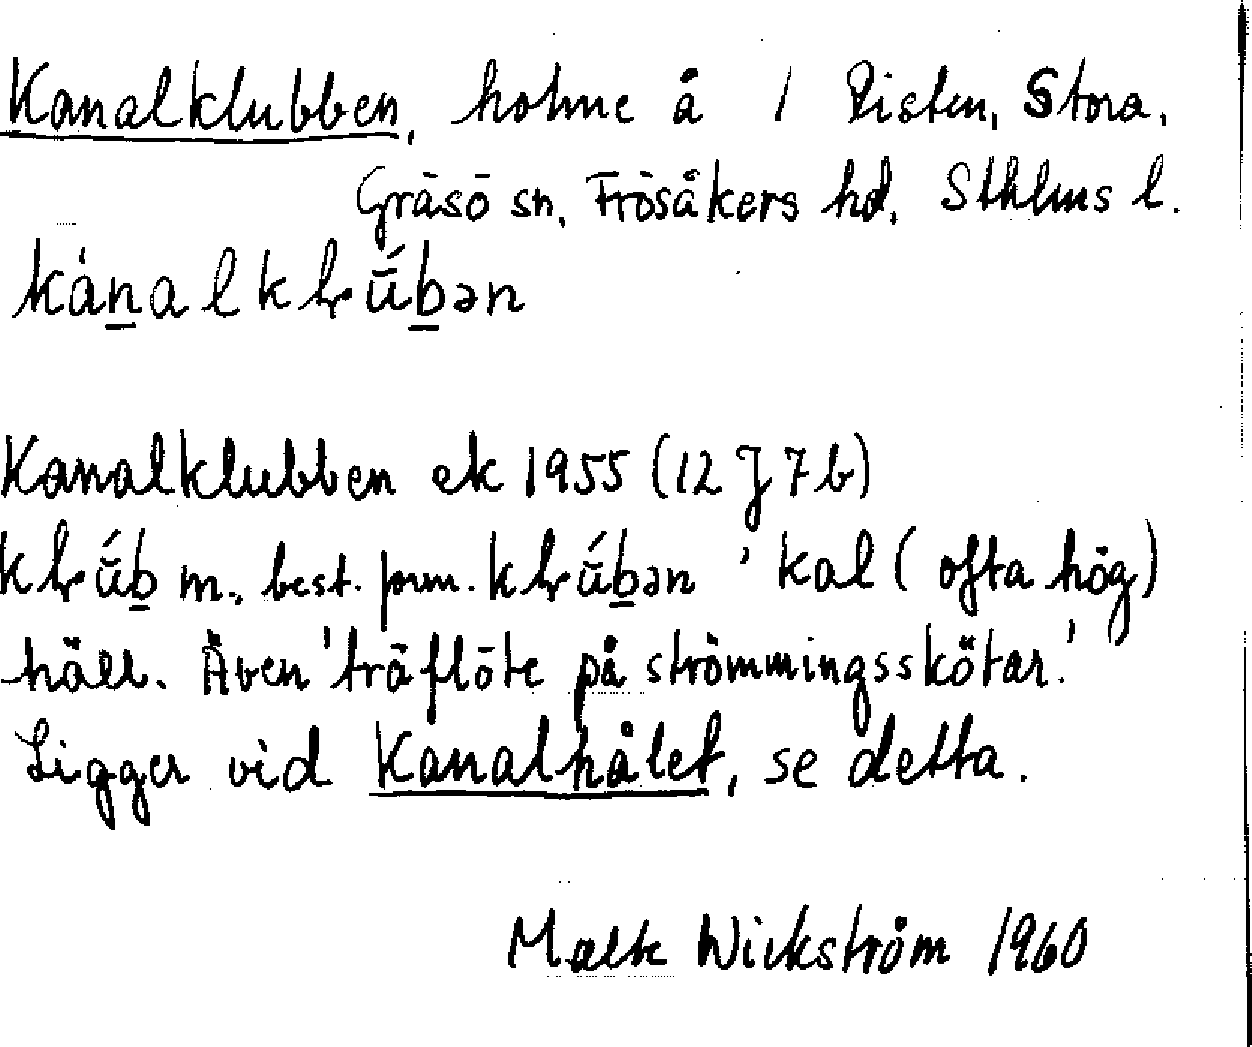 Kanalklubben, holme å 1 Risten, Stora.
Gräsö sn, Frösåkers hd. Sthlms l.
Kanalklubben ek 1955 (12 J 7 b)
m., best. form. 'kal (ofta hög)
häll. Även 'träflöte på strömmingsskötar.'
Ligger vid Kanalhålet, se detta.
Malte Wickström 1960